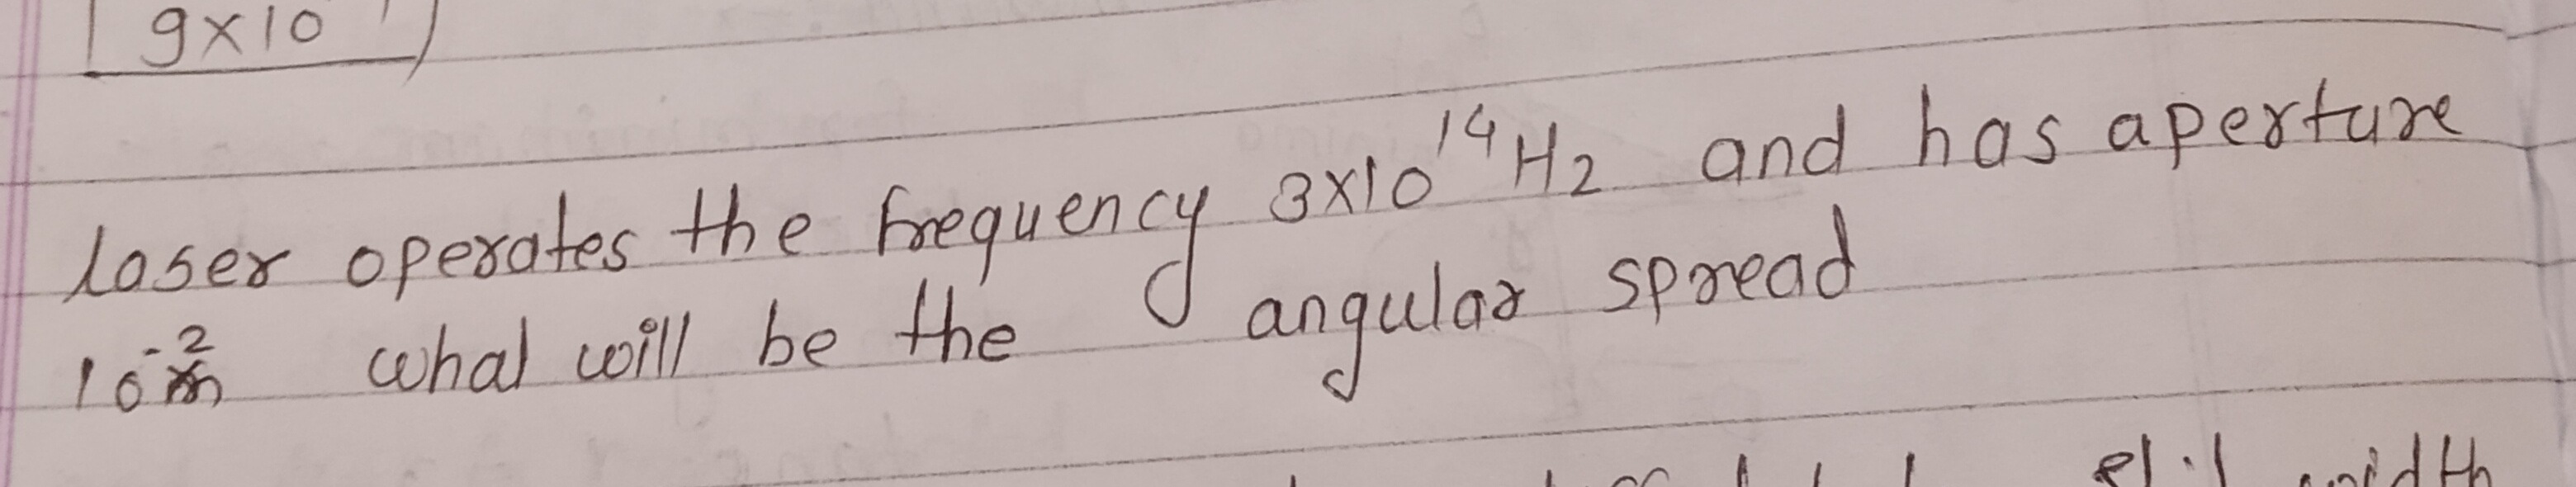 9×10
laser operates the frequency 3×10¹⁴ Hz and has aperture
10⁻²m what will be the angular spread
width